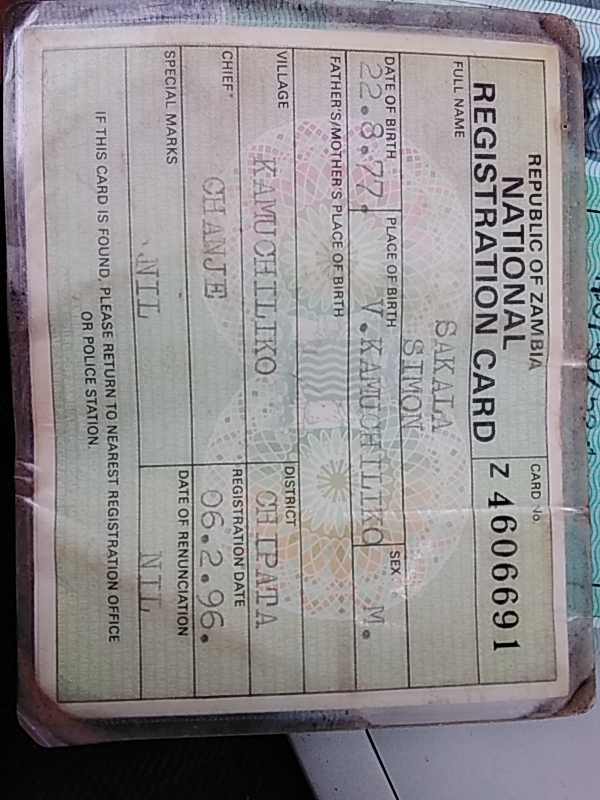 REPUBLIC OF ZAMBIA
NATIONAL
REGISTRATION CARD
CARD No.
Z 4606691
FULL NAME
SAKALA
SIMON
DATE OF BIRTH
22.8.77.
PLACE OF BIRTH
V.KAMUCHILIKO
SEX
M.
FATHER'S/MOTHER'S PLACE OF BIRTH
VILLAGE
KAMUCHILIKO
DISTRICT
CHIPATA
CHIEF
CHANJE
REGISTRATION DATE
06.2.96.
SPECIAL MARKS
NIL
DATE OF RENUNCIATION
NIL
IF THIS CARD IS FOUND, PLEASE RETURN TO NEAREST REGISTRATION OFFICE
OR POLICE STATION.